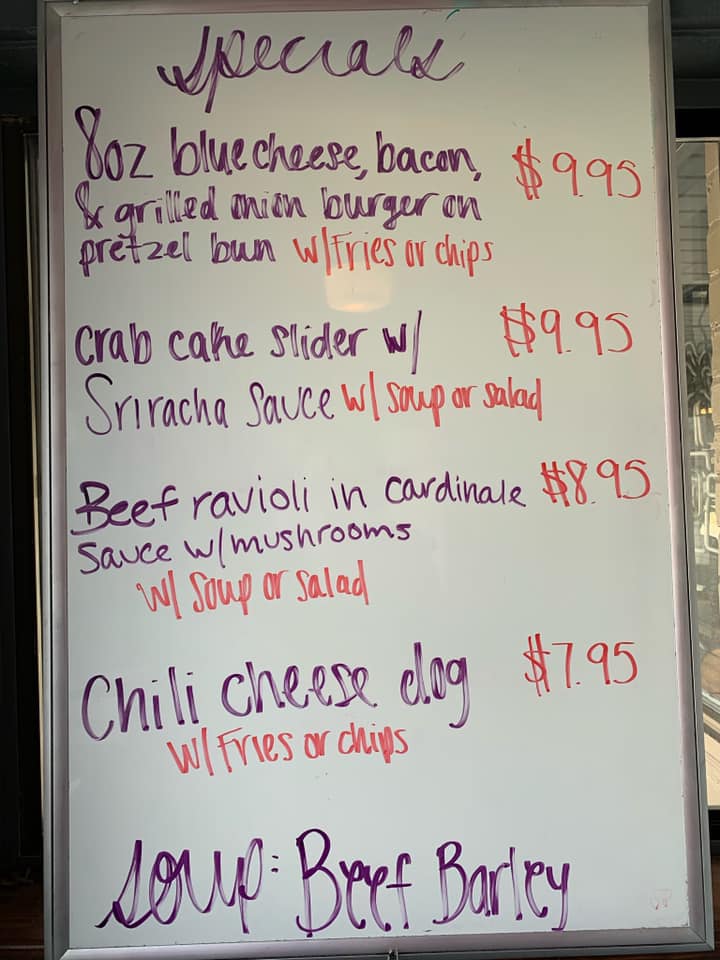 Specials
8oz blue cheese, bacon, $9.95
& grilled onion burger on
pretzel bun w/Fries or chips
crab cake slider w/ $9.95
Sriracha sauce w/ soup or salad
Beef ravioli in cardinale $8.95
sauce w/mushrooms
w/ soup or salad
Chili cheese dog $7.95
w/ Fries or chips
soup: Beef Barley